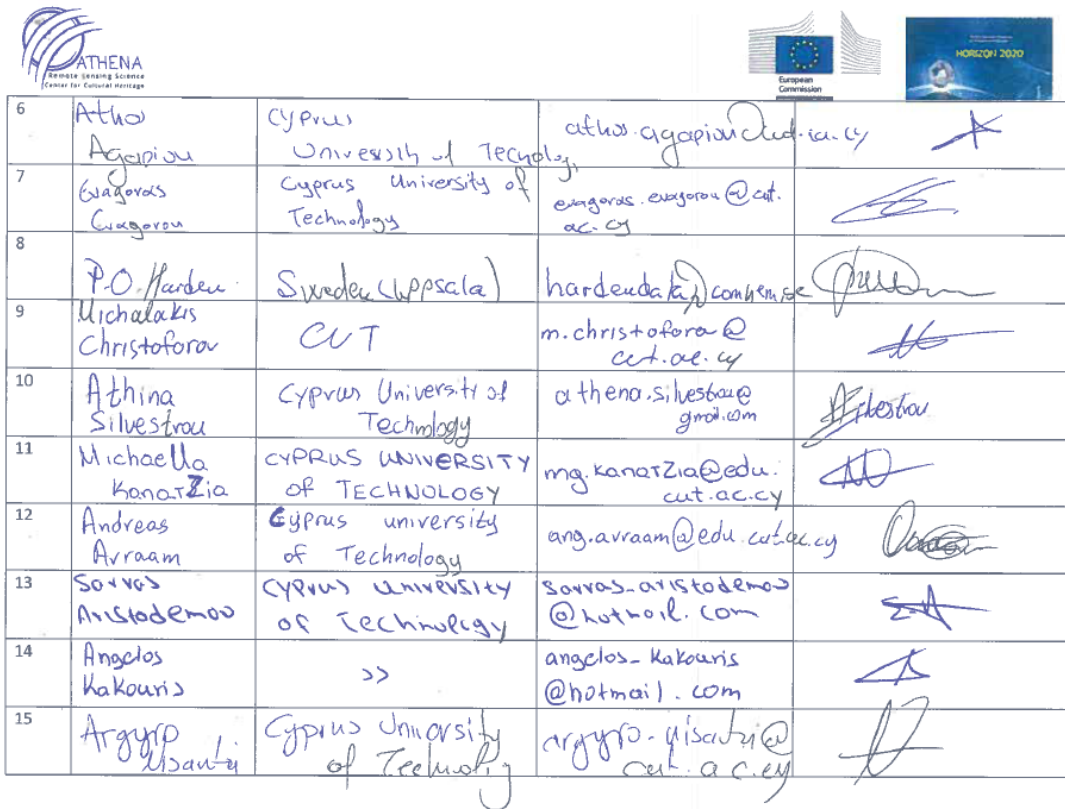 ATHENA
Remote Sensing Science
Center for Cultural Heritage
European
Commission
HORIZON 2020
6
Athos
Agapiou
Cyprus
University of Technology
athos.agapiou@cut.ac.cy
7
Evagoras
Evagorou
Cyprus University of
Technology
evagoras.evagorou@cut.
ac.cy
8
P.O. Harden
Sweden (Uppsala)
9
Michalakis
Christoforou
CUT
m.christoforou@
cut.ac.cy
10
Athina
Silvestrou
Cyprus University of
Technology
athena.silvestrou@
gmail.com
Silvestrou
11
Michaella
KanarZia
CYPRUS UNIVERSITY
of TECHNOLOGY
mg.kanarZia@edu.
cut.ac.cy
12
Andreas
Avraam
Cyprus university
of Technology
ang.avraam@edu.cut.ac.cy
13
Savvas
Aristodemou
Cyprus University
of Technology
savvas_aristodemou
@hotmail.com
14
Angelos
Kakouris
>>
angelos_kakouris
@hotmail.com
15
Argyro
Cyprus University
of Technology
cut.ac.cy